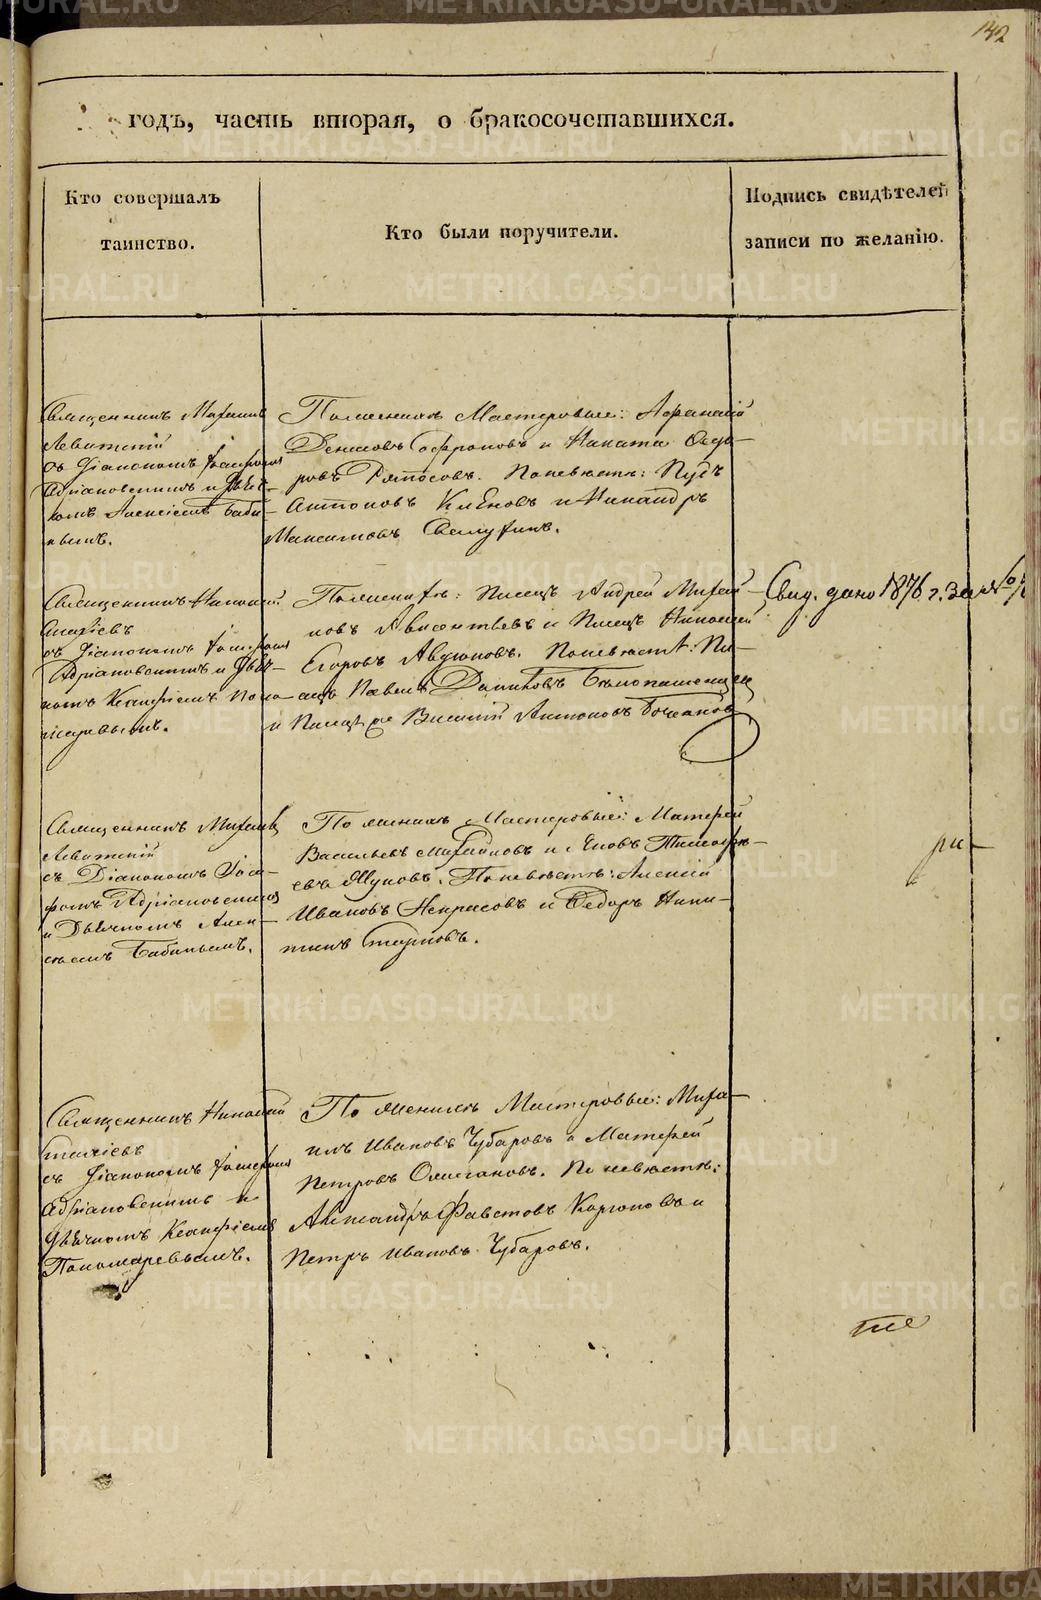 142
годъ, часть вторая, о бракосочетавшихся.
Кто совершалъ
таинство.
Кто были поручители.
Подпись свидѣтелей
записи по желанію.
Священникъ Михаилъ
Левитскій
съ Діакономъ Іосифомъ
Адріановскимъ и Дьяч-
комъ Алексіемъ Баби-
нымъ.
По женихѣ Мастеровые: Афанасій
Денисовъ Софроновъ и Никита Ѳедо-
ровъ Ряпосовъ. По невѣстѣ: Пудъ
Антоновъ Клёновъ и Никандръ
Максимовъ
Священникъ Николай
съ Діакономъ Іосифомъ
Адріановскимъ и Дьяч-
комъ Ксенофонтомъ Поно-
маревымъ.
По женихѣ: Писецъ Андрей Михай-
ловъ и Писецъ Николай
Егоровъ. По невѣстѣ: Пи-
сецъ Павелъ Даниловъ Бѣлопашенцевъ
и Писецъ же Василій Антоновъ
Свид. дано 1876 г. за №
Священникъ Михаилъ
Левитскій
съ Діакономъ Іоси-
фомъ Адріановскимъ
и Дьячкомъ Алек-
сѣемъ Бабинымъ.
По женихѣ Мастеровые: Матвей
Васильевъ Михайловъ и Яковъ Тимофе-
евъ Жуковъ. По невѣстѣ: Алексій
Ивановъ Некрасовъ и Ѳедоръ Ники-
тинъ
ри-
Священникъ Николай
съ Діакономъ Іосифомъ
Адріановскимъ и
Дьячкомъ
Пономаревымъ.
По женихѣ Мастеровые: Миха-
илъ Ивановъ Чубаровъ и Матвей
Петровъ. По невѣстѣ:
Александръ Фавстовъ Корюковъ и
Петръ Ивановъ Чубаровъ.
METRIKI.GASO-URAL.RU